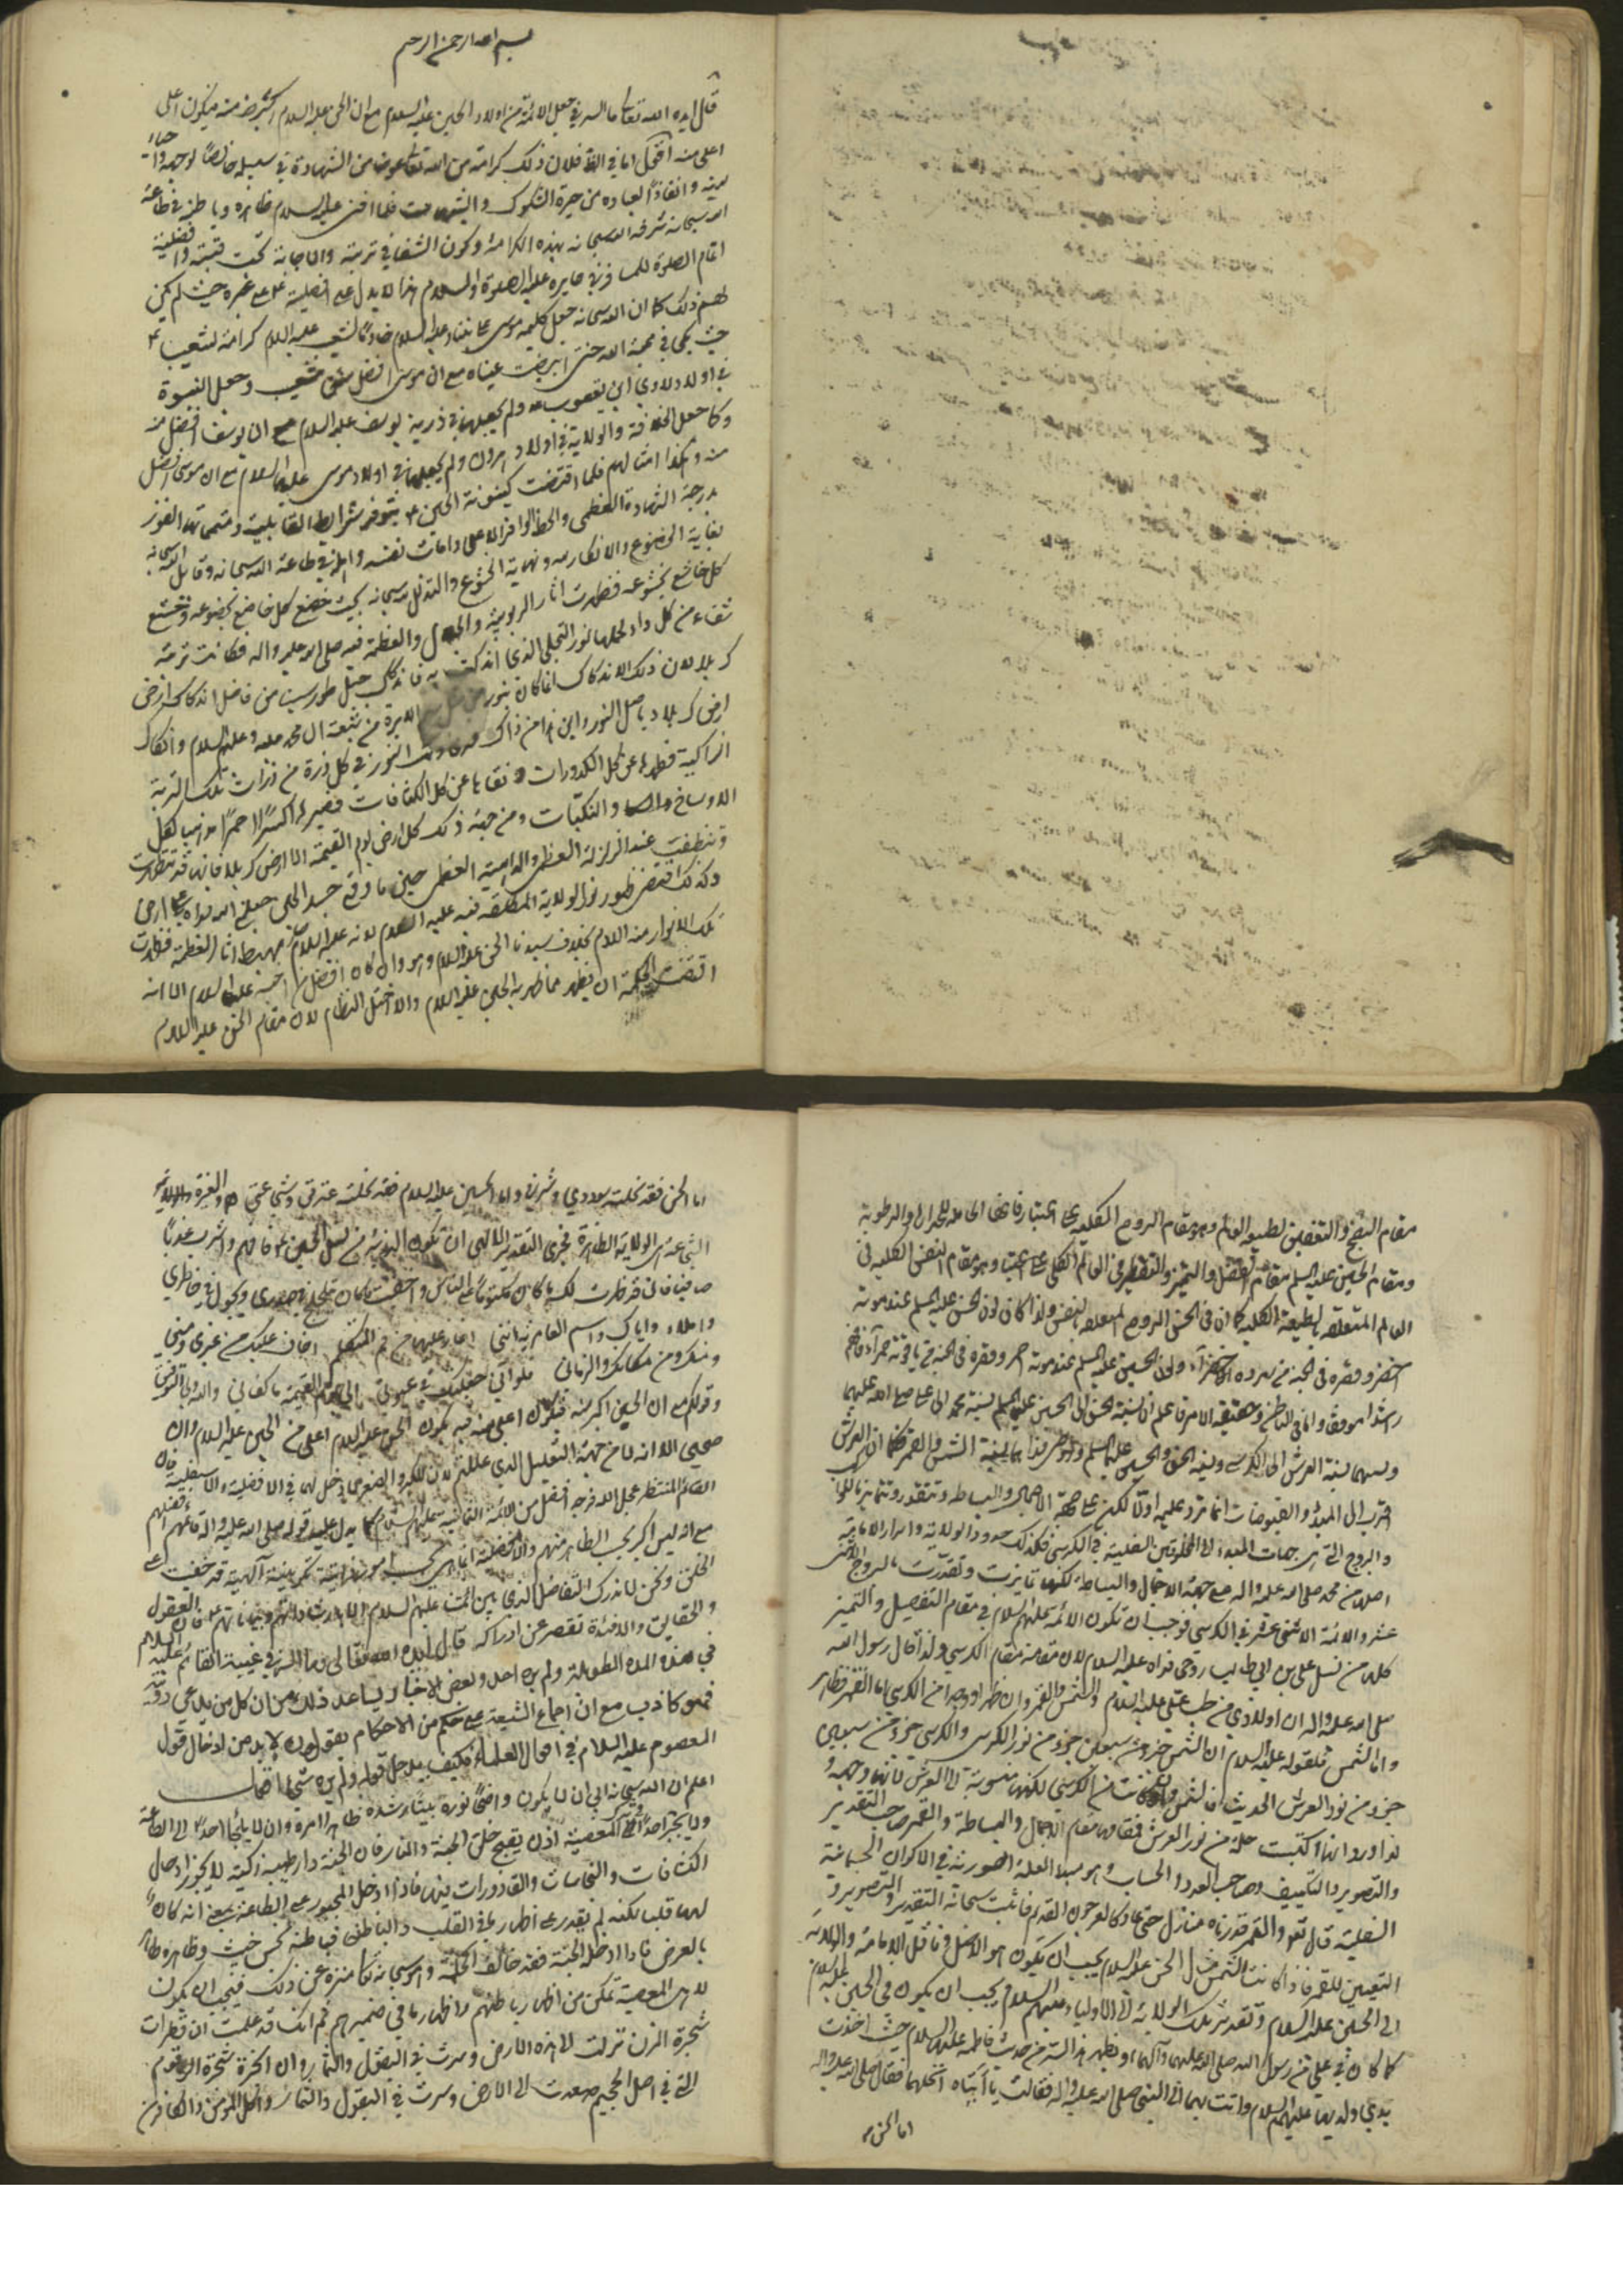 بسم الله الرحمن الرحيم
قال ايده الله تعالى ما السر في جعل الائمة من اولاد الحسين عليه السلام مع ان الحسن عليه السلام اكبر منه فيكون اعلى
اعلى منه اقول اما في الظ فلان ذلك كرامة من الله تعالى عوض من الشهادة في سبيله خالصا لوجهه واحياء
لدينه وانقاذا لعباده من حيرة الشكوك والشبهات فلما افنى عليه السلام ظاهره وباطنه في طاعة
الله سبحانه شرفه الله سبحانه بهذه الكرامة وكون الشفاء في تربته والاجابة تحت قبته وافضلية
اتمام الصلوة للمسافر في حايره عليه الصلوة والسلام وهذا لا يدل على افضليته على غيره حيث لم يكن
لهم ذلك كما ان الله سبحانه جعل كليمه موسى على نبينا وعليه السلام خادما لشعيب عليه السلام كرامة لشعيب
حيث بكى في محبة الله حتى ابيضت عيناه مع ان موسى افضل من شعيب وجعل النبوة
في اولاد لاوي ابن يعقوب ولم يجعلها في ذرية يوسف عليه السلام مع ان يوسف افضل منه
وكما جعل الخلافة والولاية في اولاد هرون ولم يجعلها في اولاد موسى عليهما السلام مع ان موسى افضل
منه وهكذا امثالهم فلما اقتضت كينونة الحسين بتوفر شرايط القابلية ومتمماتها الفوز
بدرجة الشهادة العظمى والحظ الوافر الاعلى وامات نفسه واهله في طاعة الله سبحانه وقابل الله سبحانه
بغاية الخضوع والانكسار ونهاية الخشوع والتذلل لله سبحانه بحيث خضع كل خاضع بخضوعه وخشع
كل خاشع بخشوعه فظهرت اثار الربوبية والجلال والعظمة فيه صلى الله عليه واله فكانت تربته
شفاء من كل داء لحملها نور التجلي الذي اندكت به فاندكاك جبل طور سينا من فاضل اندكاك ارض
كربلا لان ذلك الاندكاك انما كان بنور من شيعة ال محمد عليه وعليهم السلام واندكاك
ارض كربلا باصل النور واين هذا من ذاك النور في كل ذرة من ذرات تلك التربة
الزاكية فطهرها عن كل الكدورات ونقاها عن كل الكثافات فصيرها اكسيرا احمر مذهبا لكل
الاوساخ والنكبات ومن جهة ذلك كل ارض يوم القيمة الا ارض كربلا فانها قد تطهرت
وتنظفت عند الزلزلة العظمى والداهية العظمى حين ما وقع جسد الحسين جعلني الله فداه على ارض
وكذلك اقتضى ظهور نور الولاية المطلقة فيه عليه السلام لانه عليه السلام مهبط اثار العظمة فظهرت
تلك الانوار منه السلام بخلاف سيدنا الحسن عليه السلام وهو وان كان افضل من اخيه عليه السلام الا انه
اقتضت الحكمة ان يظهر ما ظهر به الحسين عليه السلام والا اختل النظام لان مقام الحسن عليه السلام
مقام النضج والتعفين لطبيعة العالم وهو مقام الروح الكلية على اعتبار فانها الحاملة للحرارة والرطوبة
ومقام الحسين عليه السلم مقام الفصل والتميز والتقطير في العالم الكلي على اعتبار وهو مقام النفس الكلية في
العالم المتعلقة بالطبيعة الكلية كما ان في الحسن الروح المتعلقة بالنفس ولذا كان لون الحسن عليه السلم عند موته
اخضر وقصره في الجنة من زمردة خضراء ولون الحسين عليه السلم عند موته احمر وقصره في الجنة من ياقوتة حمراء فافهم
راشدا موفقا واما في الباطن وحقيقة الامر فاعلم ان نسبة الحسن الى الحسين عليهما السلم نسبة محمد الى علي صلى الله عليهما
ولسيهما نسبة العرش الى الكرسي ونسبة الحسن والحسين عليهما السلم نسبة الشمس والقمر فكما ان العرش
اقرب الى المبدء والفيوضات انما ترد عليه اولا لكن على جهة الاجمال والبساطة وتتقدر وتتمايز
والبروج التي هي جهات المبدء الى المخلوقين السفلية في الكرسي فكذلك حدود الولاية واسرار الامامة
اصلها من محمد صلى الله عليه واله على جهة الاجمال والبساطة لكنها تمايزت وتقدرت بالبروج الاثنى
عشر والائمة الاثنى عشر في الكرسي فوجب ان تكون الائمة عليهم السلام في مقام التفصيل والتميز
كلها من نسل علي بن ابي طالب روحي فداه عليه السلام لان مقامه مقام الكرسي ولذا قال رسول الله
صلى الله عليه واله ان اولادي من صلب علي عليه السلام والشمس والقمر وان ظهرا ووجدا من الكرسي اما القمر فظاهر
واما الشمس فلقوله عليه السلام ان الشمس جزء من سبعين جزء من نور الكرسي والكرسي جزء من سبعين
جزء من نور العرش الحديث فالشمس وان كانت من الكرسي لكنها منسوبة الى العرش
لذا ورد انها اكتست حلة من نور العرش فمقامها مقام الاجمال والبساطة والقمر صاحب التقدير
والتصوير والتكييف وصاحب العدد والحساب وهو مبدء العلة الصورية في الاكوان الجسمانية
السفلية قال تعالى والقمر قدرناه منازل حتى عاد كالعرجون القديم فاثبت سبحانه التقدير والتصوير و
التعيين للقمر فاذا كانت الشمس الحسن عليه السلام يجب ان يكون هو الاصل في الامامة والولاية
الى الحسين عليه السلام وتقدير تلك الولاية الى الاولياء عليهم السلام يجب ان يكون في الحسين عليه السلام
كما كان في علي من رسول الله صلى الله عليهما وآلهما ويظهر هذا السر من حديث فاطمة عليها السلام حيث اخذت
بيدي ولديها عليهم السلام واتت بهما الى النبي صلى الله عليه واله فقالت يا أبتاه انحلهما فقال صلى الله عليه واله
اما الحسن
اما الحسن فقد نحلته سوددي وشرفي واما الحسين عليه السلام فقد نحلته عزتي وشجاعتي والعزة
الشجاعة هي الولاية الظاهرة فجرى التقدير الالهي ان تكون الذرية من نسل الحسين فافهم واشرب عذبا
صافيا فاني قد ظهرت لك ما كان مكتوما على الناس واسقيت ما كان يتلجلج في صدري ويجول في خاطري
واملاء واياك واسم العامرية انني اغار عليها من فم المتكلم اخاف عليك من غيري ومني
ومنك ومن مكانك والزمان فلو اني جعلتك في عيوني الى يوم القيمة ما كفاني والله ولي التوفيق
وقولكم مع ان الحسن اكبر منه فيكون اعلى منه فيه يكون الحسن عليه السلام اعلى من الحسين عليه السلام وان
صحيحا الا انه لا من جهة التعليل الذي عللتم لان للكبر والصغر لا دخل لهما في الافضلية والاسفلية فان
القائم المنتظر عجل الله فرجه افضل من الائمة الثمانية عليهم السلام كما يدل عليه قوله صلى الله عليه واله قائمهم افضلهم
مع انه ليس اكبر بحسب الظاهر منهم والافضلية انما هي بحسب امور ذاتية الهية قد خفيت على
الخلق ونحن لا ندرك التفاضل الذي بين ائمتنا عليهم السلام الا بارشاداتهم وبياناتهم فان العقول
والحقايق والافئدة تقصر عن ادراكه قال ايده الله تعالى وما السر في غيبة القائم عليه السلام
في هذه المدة الطويلة ولم يره احد وبعض الاخبار يساعد ذلك من ان كل من يدعي رؤيته
فهو كاذب مع ان اجماع الشيعة على حكم من الاحكام يقولون لا بد من ادخال قول
المعصوم عليه السلام في اقوال العلماء فكيف يدخل قوله ولم يره شيئا اقول
اعلم ان الله سبحانه ابى ان لا يكون واضحا نوره بينا رشده ظاهرا امره وان لا يلجأ احدا الى الطاعة
ولا يجبر احدا على المعصية اذن يقبح خلق الجنة والنار فان الجنة دار طيبة زكية لا يجوز ادخال
الكثافات والنجاسات والقاذورات فيها فاذا ادخل المجبور على الطاعة بمعنى انه كان
لها قلبا لكنه لم يقدر على اظهار ما في القلب والباطن فباطنه نجس خبيث وظاهره طاهر
بالعرض فاذا ادخله الجنة فقد خالف الحكمة وهو سبحانه تعالى منزه عن ذلك فيجب ان يكون
لاهل المعصية تمكن من اظهار باطنهم واظهار ما في ضميرهم ثم انك قد علمت ان قطرات
شجرة المزن نزلت الى هذه الارض وسرت في البقول والثمار وان ابخرة شجرة الزقوم
التي في اصل الجحيم صعدت الى الارض وسرت في البقول والثمار واكل المؤمن والكافر من